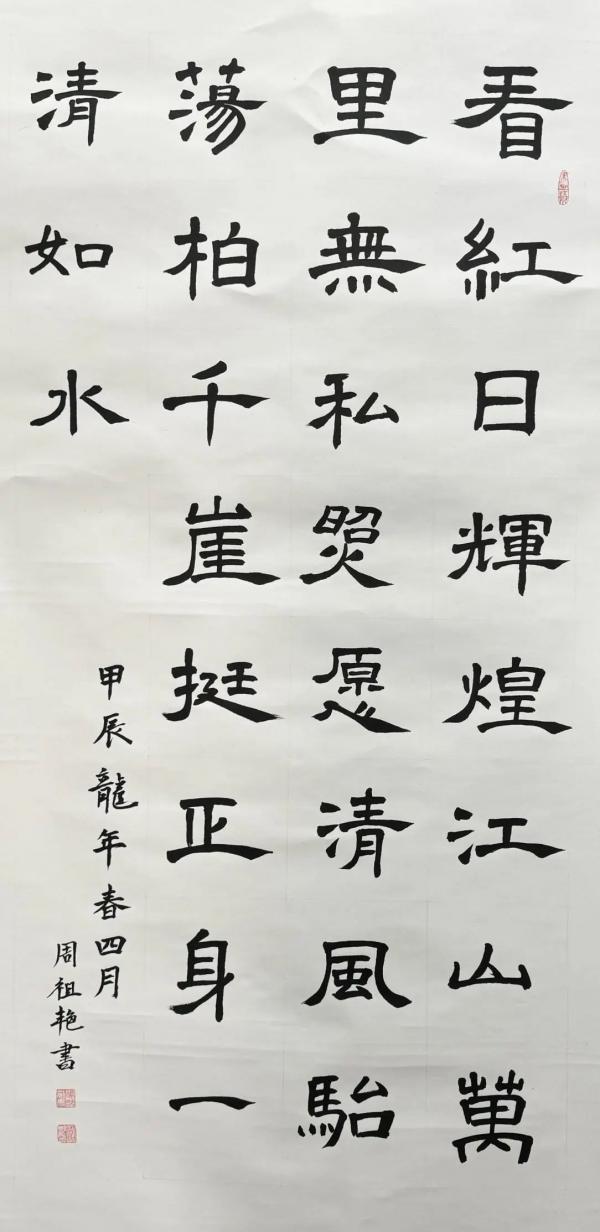 看紅日輝煌江山萬
里無私照愿清風駘
蕩柏千崖挺正身一
清如水
甲辰龍年春四月
周祖艳書